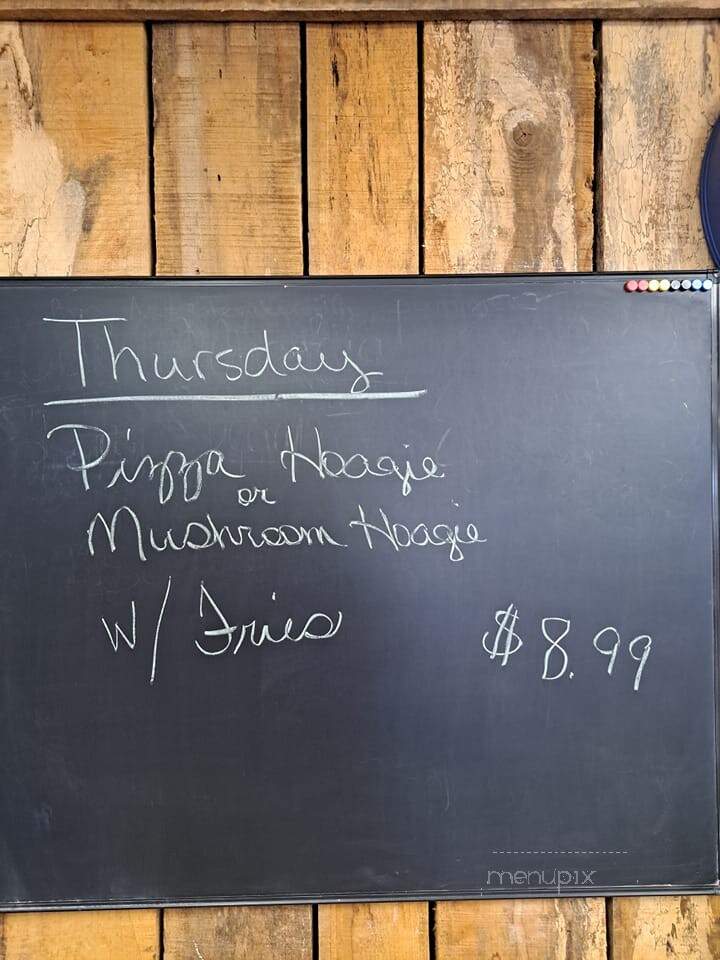 Thursday
Pizza Hoagie
or
Mushroom Hoagie
W/ Fries $8.99
menupix